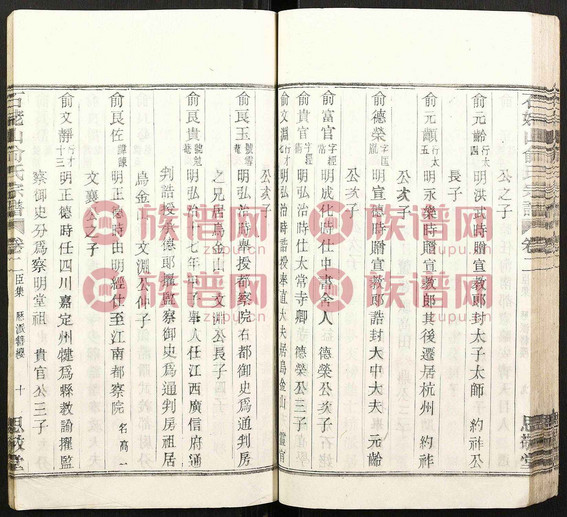 石姥山俞氏宗譜
公之子
俞元齡 行太四 明洪武時贈宣教郎封太子太師 約祥公
長子
俞元顯 行太五 明永樂時贈宣教郎其後遷居杭州 約祥
公次子
俞德榮 字 胤 明宣德時贈宣教郎誥封大中大夫 元齡
公次子
俞富官 字 明成化時仕中書舍人 德榮公次子
俞貴官 字 明弘治時仕太常寺卿 德榮公三子
俞文淵 行 七 明弘治時誥授奉直大夫居烏金山 富官
公次子
俞良玉 號雪 明弘治時舉授都察院右都御史為通判房
之兄居烏金山 文淵公長子
俞良貴 號 明弘治十七年甲子舉人仕江西廣信府通
判誥授承德郎 監察御史為通判房祖居
烏金山 文淵公仲子
俞良佐 諱謙 明正德時由明經仕至江南都察院 名高一
文襄公之子
俞文靜 行才十三 明正德時任四川嘉定州犍為縣教諭擢監
察御史分為察明堂祖 貴官公三子
石姥山俞氏宗譜 卷一 臣集 歷派簪纓 十 思敬堂
族谱网
族谱网
族谱网
族谱网